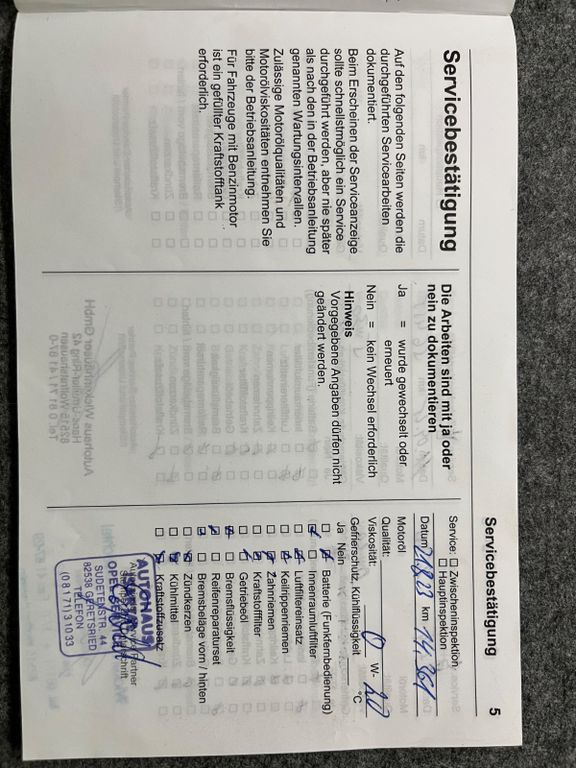 Servicebestätigung
Auf den folgenden Seiten werden die
durchgeführten Servicearbeiten
dokumentiert.
Beim Erscheinen der Serviceanzeige
sollte schnellstmöglich ein Service
durchgeführt werden, aber nie später
als nach den in der Betriebsanleitung
genannten Wartungsintervallen.
Zulässige Motorölqualitäten und
Motorölviskositäten entnehmen Sie
bitte der Betriebsanleitung.
Für Fahrzeuge mit Benzinmotor
ist ein gefüllter Kraftstofftank
erforderlich.
Die Arbeiten sind mit ja oder
nein zu dokumentieren
Ja = wurde gewechselt oder
erneuert
Nein = kein Wechsel erforderlich
Hinweis
Vorgegebene Angaben dürfen nicht
geändert werden.
Autohaus Wiokmhauser GmbH
Tel. 0 81 71 / 41 81-0
Servicebestätigung 5
Service: ☐ Zwischeninspektion
☐ Hauptinspektion
Datum 21.8.23 km 14.361
Motoröl
Qualität:
Viskosität: 0 W- 20
Gefrierschutz, Kühlflüssigkeit °C
Ja Nein
Batterie (Funkfernbedienung)
Innenraumluftfilter
Luftfiltereinsatz
Keilrippenriemen
Zahnriemen
Kraftstofffilter
Getriebeöl
Bremsflüssigkeit
Reifenreparaturset
Bremsbeläge vorn / hinten
Zündkerzen
Kühlmittel
Kraftstoffzusatz
AUTOHAUS
OPEL
SUDETENSTR. 44
82538 GERETSRIED
TELEFON
(0 81 71) 3 10 33